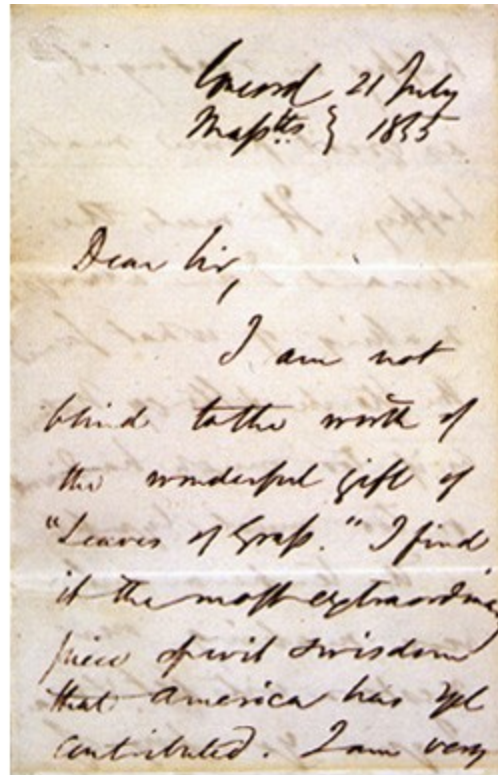 Concord 21 July
Massts. } 1855
Dear Sir,
I am not
blind to the worth of
the wonderful gift of
"Leaves of Grass." I find
it the most extraordinary
piece of wit & wisdom
that America has yet
contributed. I am very